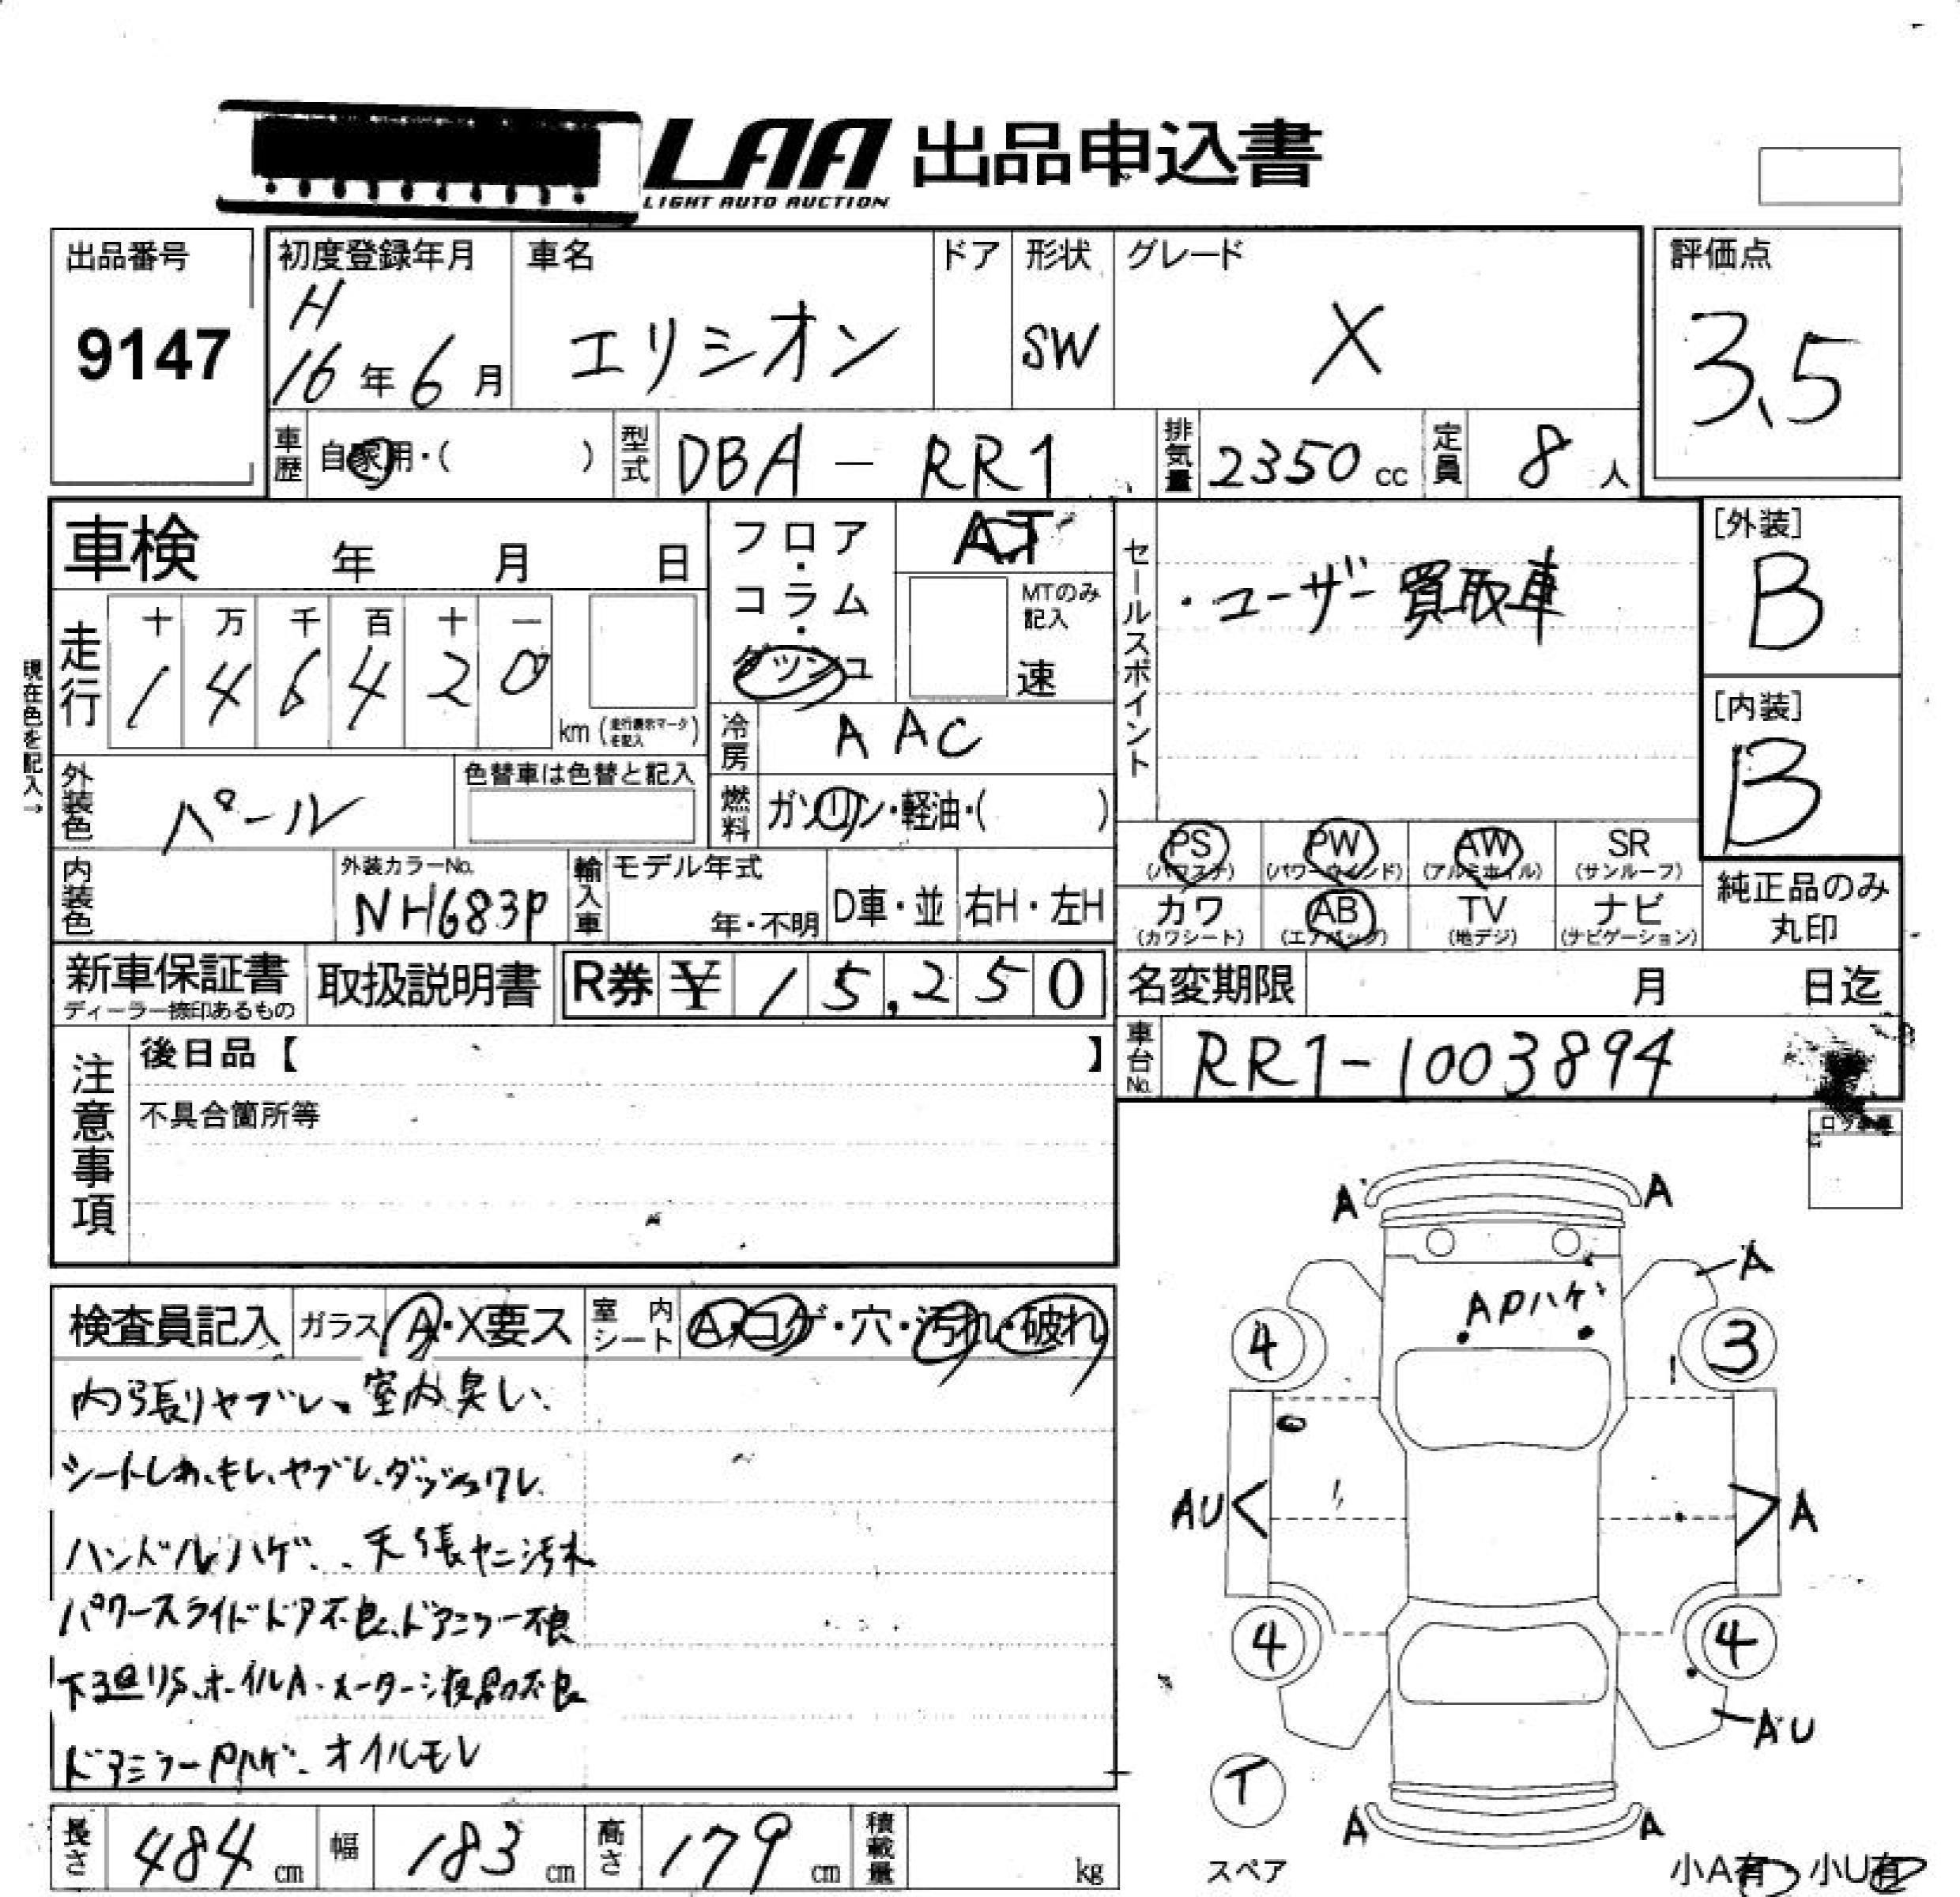 LAA 出品申込書
LIGHT AUTO AUCTION
出品番号
9147
初度登録年月
H
16年6月
車名
エリシオン
ドア
形状
SW
グレード
X
評価点
3.5
車歴 自家用・( )
型式 DBA-RR1
排気量 2350cc
定員 8人
車検 年 月 日
走行
十 万 千 百 十 一
1 4 6 4 2 0
km (走行表示マークを記入)
現在色を記入→
フロア・コラム・ダッシュ
AT
MTのみ記入
速
冷房 AAC
燃料 ガソリン・軽油・( )
セールスポイント
・ユーザー買取車
[外装]
B
[内装]
B
外装色 パール
色替車は色替と記入
内装色
外装カラーNo.
NH683P
輸入車 モデル年式
年・不明
D車・並
右H・左H
PS (パワステ)
PW (パワーウインド)
AW (アルミホイル)
SR (サンルーフ)
カワ (カワシート)
AB (エアバッグ)
TV (地デジ)
ナビ (ナビゲーション)
純正品のみ
丸印
新車保証書
ディーラー捺印あるもの
取扱説明書
R券 ¥ 15,250
名変期限 月 日迄
車台No. RR1-1003894
注意事項
後日品【 】
不具合箇所等
検査員記入
ガラス A・X要ス
室内シート A・コゲ・穴・汚れ・破れ
内張りヤブレ、室内臭い、
シートしわ、モレ、ヤブレ、ダッシュワレ
ハンドルハゲ、天張ヤニ汚れ
パワースライドドア不良、ドアミラー不良
下廻りS、ホイルA、メーター液晶不良
ドアミラーPハゲ、オイルモレ
A A
A
APハゲ
4 3
AU A
4 4
AU
T
スペア
A A
小A有 小U有
長さ 484cm
幅 183cm
高さ 179cm
積載量 kg